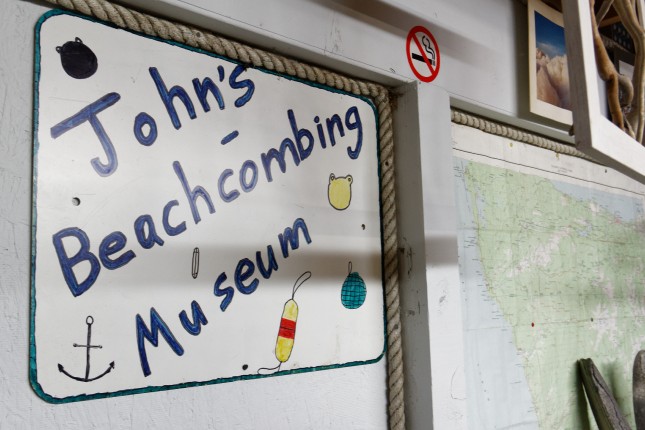 John's
Beachcombing
Museum